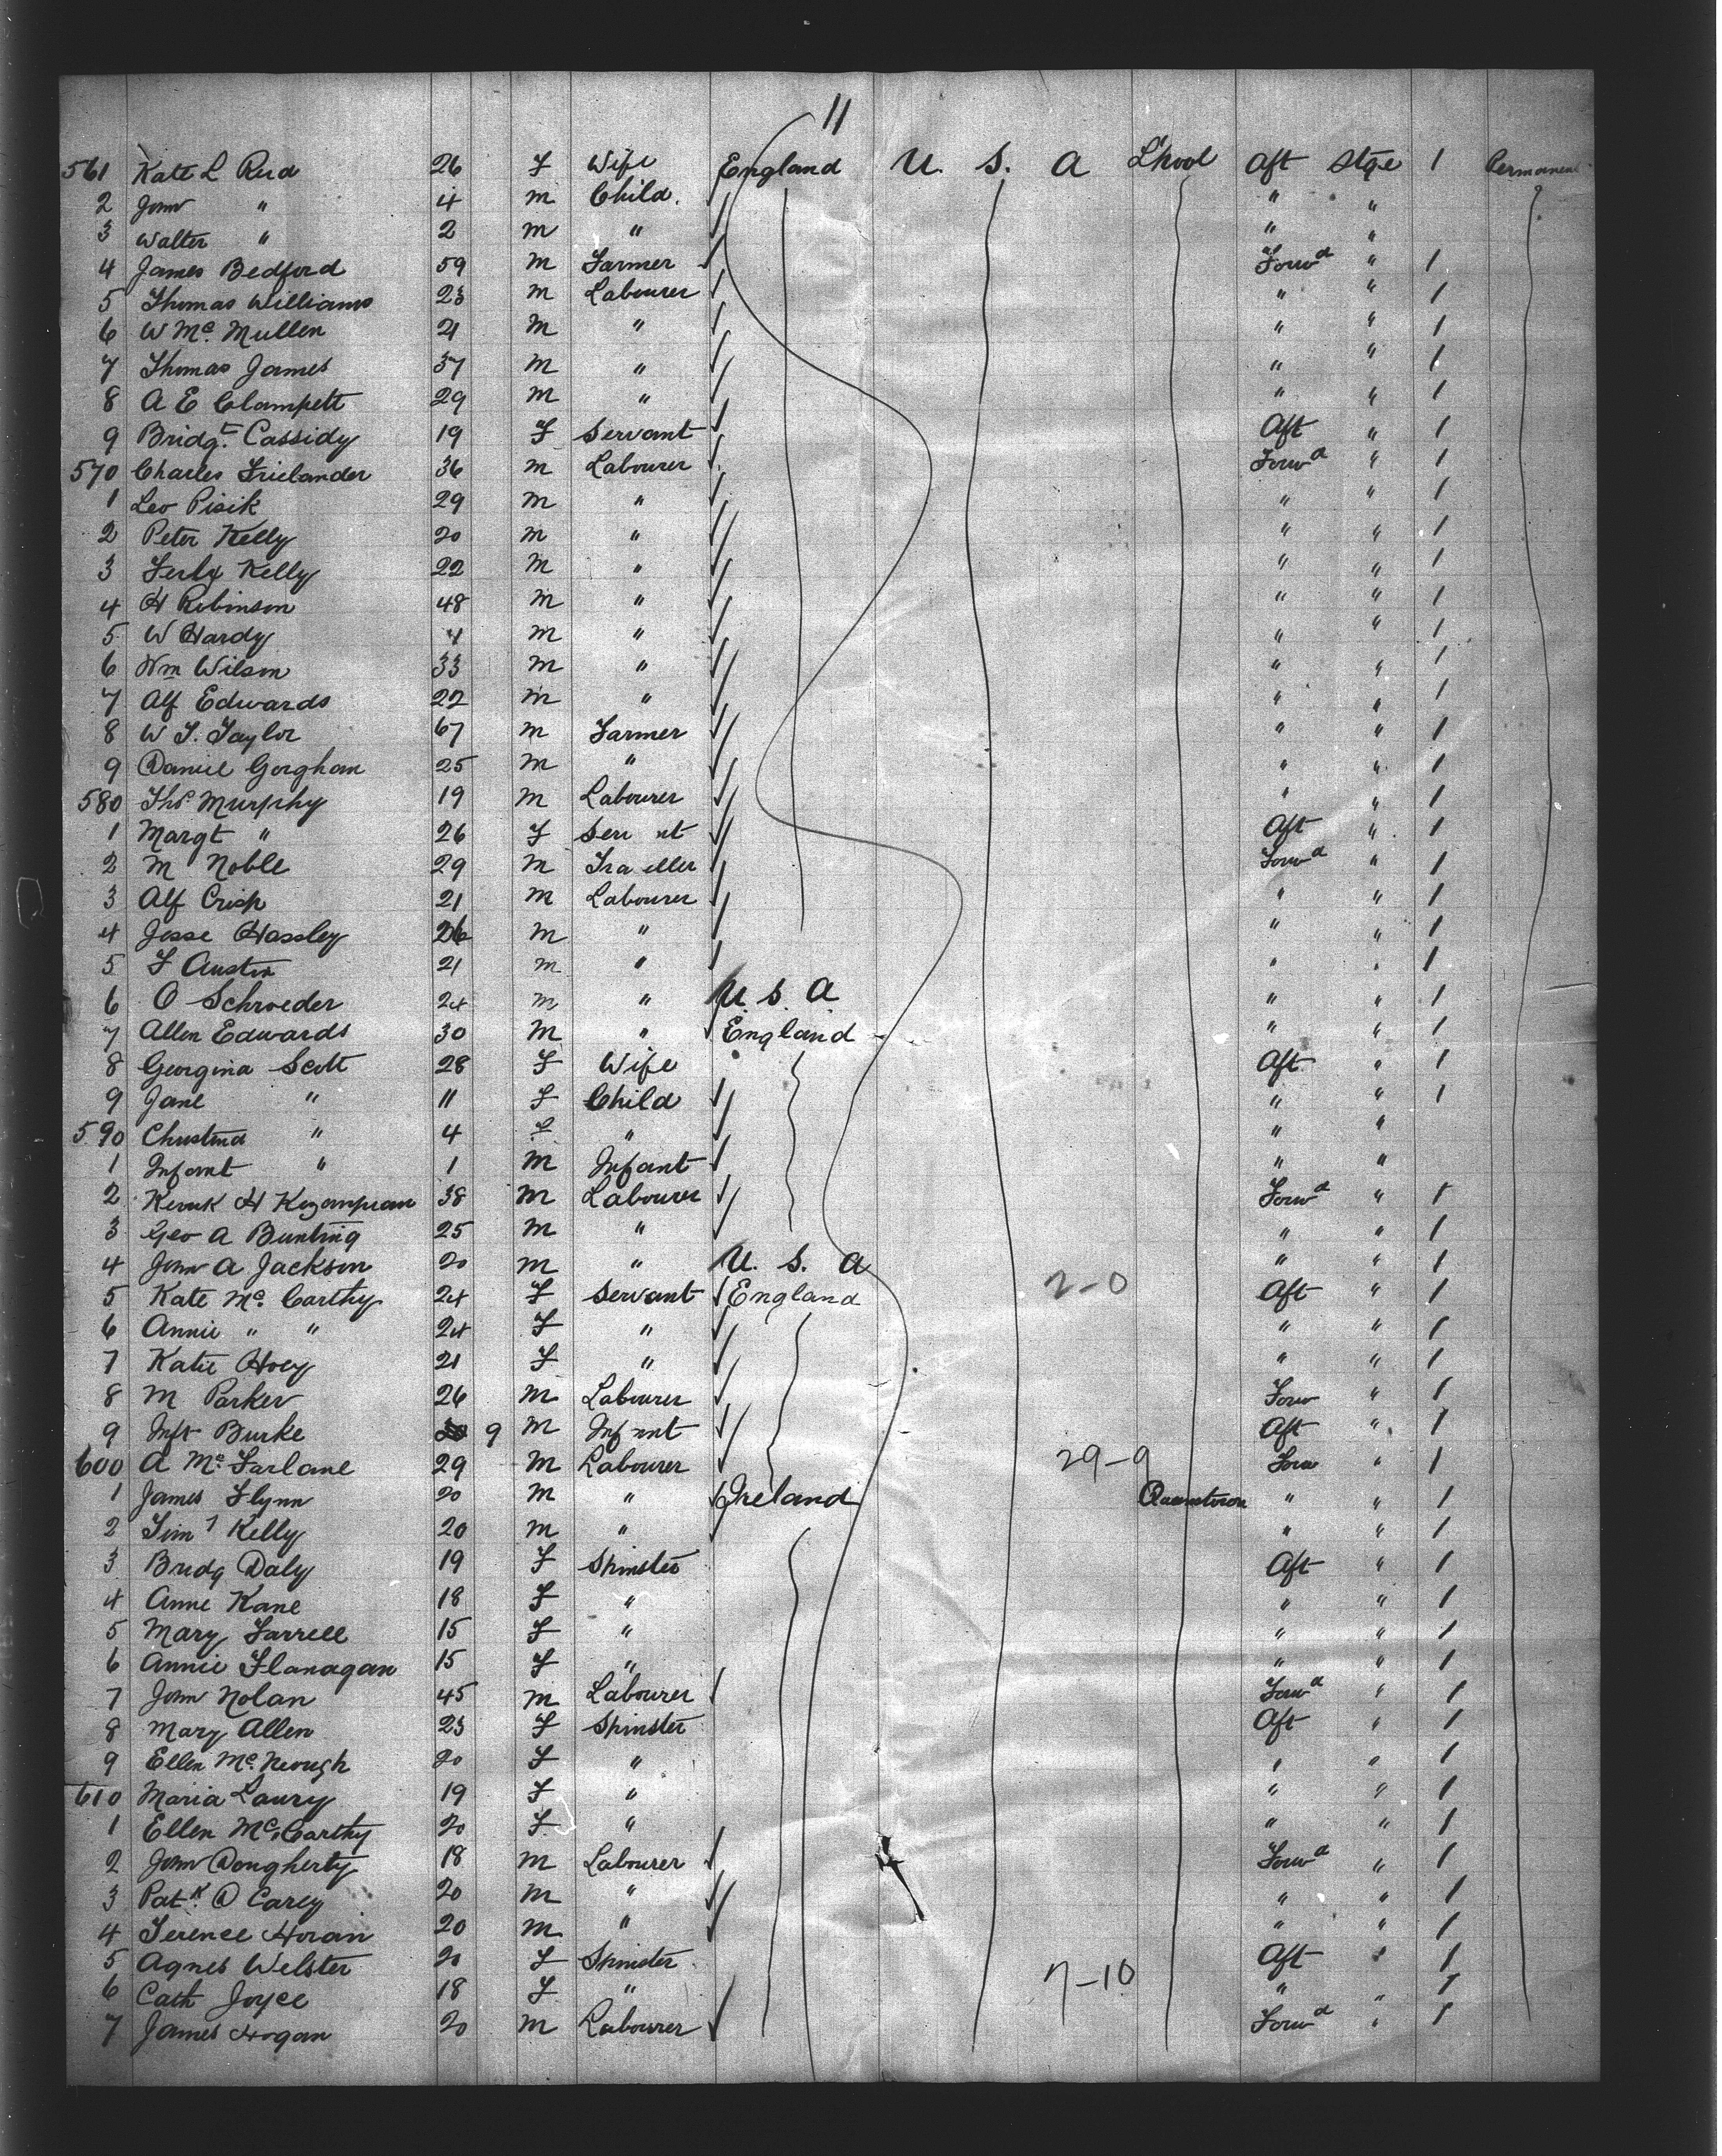 11
561 Kate L Reid 26 F Wife England U. S. A L'pool Aft Stge 1 Permanent
2 John " 4 m Child. " "
3 Walter " 2 m " " "
4 James Bedford 59 m Farmer Forwd " 1
5 Thomas Williams 23 m Labourer " " 1
6 W Mc Mullen 21 m " " " 1
7 Thomas James 37 m " " " 1
8 A E Clampett 29 m " " " 1
9 Bridgt. Cassidy 19 F Servant Aft " 1
570 Charles Frielander 36 m Labourer Forwd " 1
1 Leo Pisik 29 m " " " 1
2 Peter Kelly 20 m " " " 1
3 Kelly 22 m " " " 1
4 H Robinson 48 m " " " 1
5 W Hardy m " " " 1
6 Wm Wilson 33 m " " " 1
7 Alf Edwards 22 m " " " 1
8 W T. Taylor 67 m Farmer " " 1
9 Daniel Gorghan 25 m " " " 1
580 Thos Murphy 19 m Labourer " " 1
1 Margt " 26 F Ser nt Aft " 1
2 M Noble 29 m Tra eller Forwd " 1
3 Alf Crisp 21 m Labourer " " 1
4 Jesse Hassley 26 m " " " 1
5 F Austin 21 m " " " 1
6 O Schroeder 24 m " U. S. A " " 1
7 Allen Edwards 30 m " England " " 1
8 Georgina Scott 28 F Wife Aft " 1
9 Jane " 11 F Child " " 1
590 Christina " 4 F " " "
1 Infant " 1 m Infant " "
2 H 38 m Labourer Forwd " 1
3 Geo A Bunting 25 m " " " 1
4 John A Jackson 20 m " U. S. A " " 1
5 Kate Mc. Carthy 24 F Servant England 2-0 Aft " 1
6 Annie " " 24 F " " " 1
7 Katie Hoey 21 F " " " 1
8 M Parker 26 m Labourer Forw " 1
9 Inft Burke 9 m Inf nt Aft " 1
600 A Mc. Farlane 29 m Labourer 29-9 Forw " 1
1 James Flynn 20 m " Ireland Queenstown " " 1
2 Timy Kelly 20 m " " " 1
3 Bridg Daly 19 F Spinster Aft " 1
4 Anne Kane 18 F " " " 1
5 Mary Farrell 15 F " " " 1
6 Annie Flanagan 15 F " " " 1
7 John Nolan 45 m Labourer Forwd " 1
8 Mary Allen 23 F Spinster Aft " 1
9 Ellen Mc. Keough 20 F " " " 1
610 Maria Laury 19 F " " " 1
1 Ellen Mc. Carthy 20 F " " " 1
2 John Dougherty 18 m Labourer Forwd " 1
3 Patk. D Carey 20 m " " " 1
4 Terence Horan 20 m " " " 1
5 Agnes Welster 20 F Spinster 7-10 Aft " 1
6 Cath Joyce 18 F " " " 1
7 James Hogan 20 m Labourer Forwd " 1